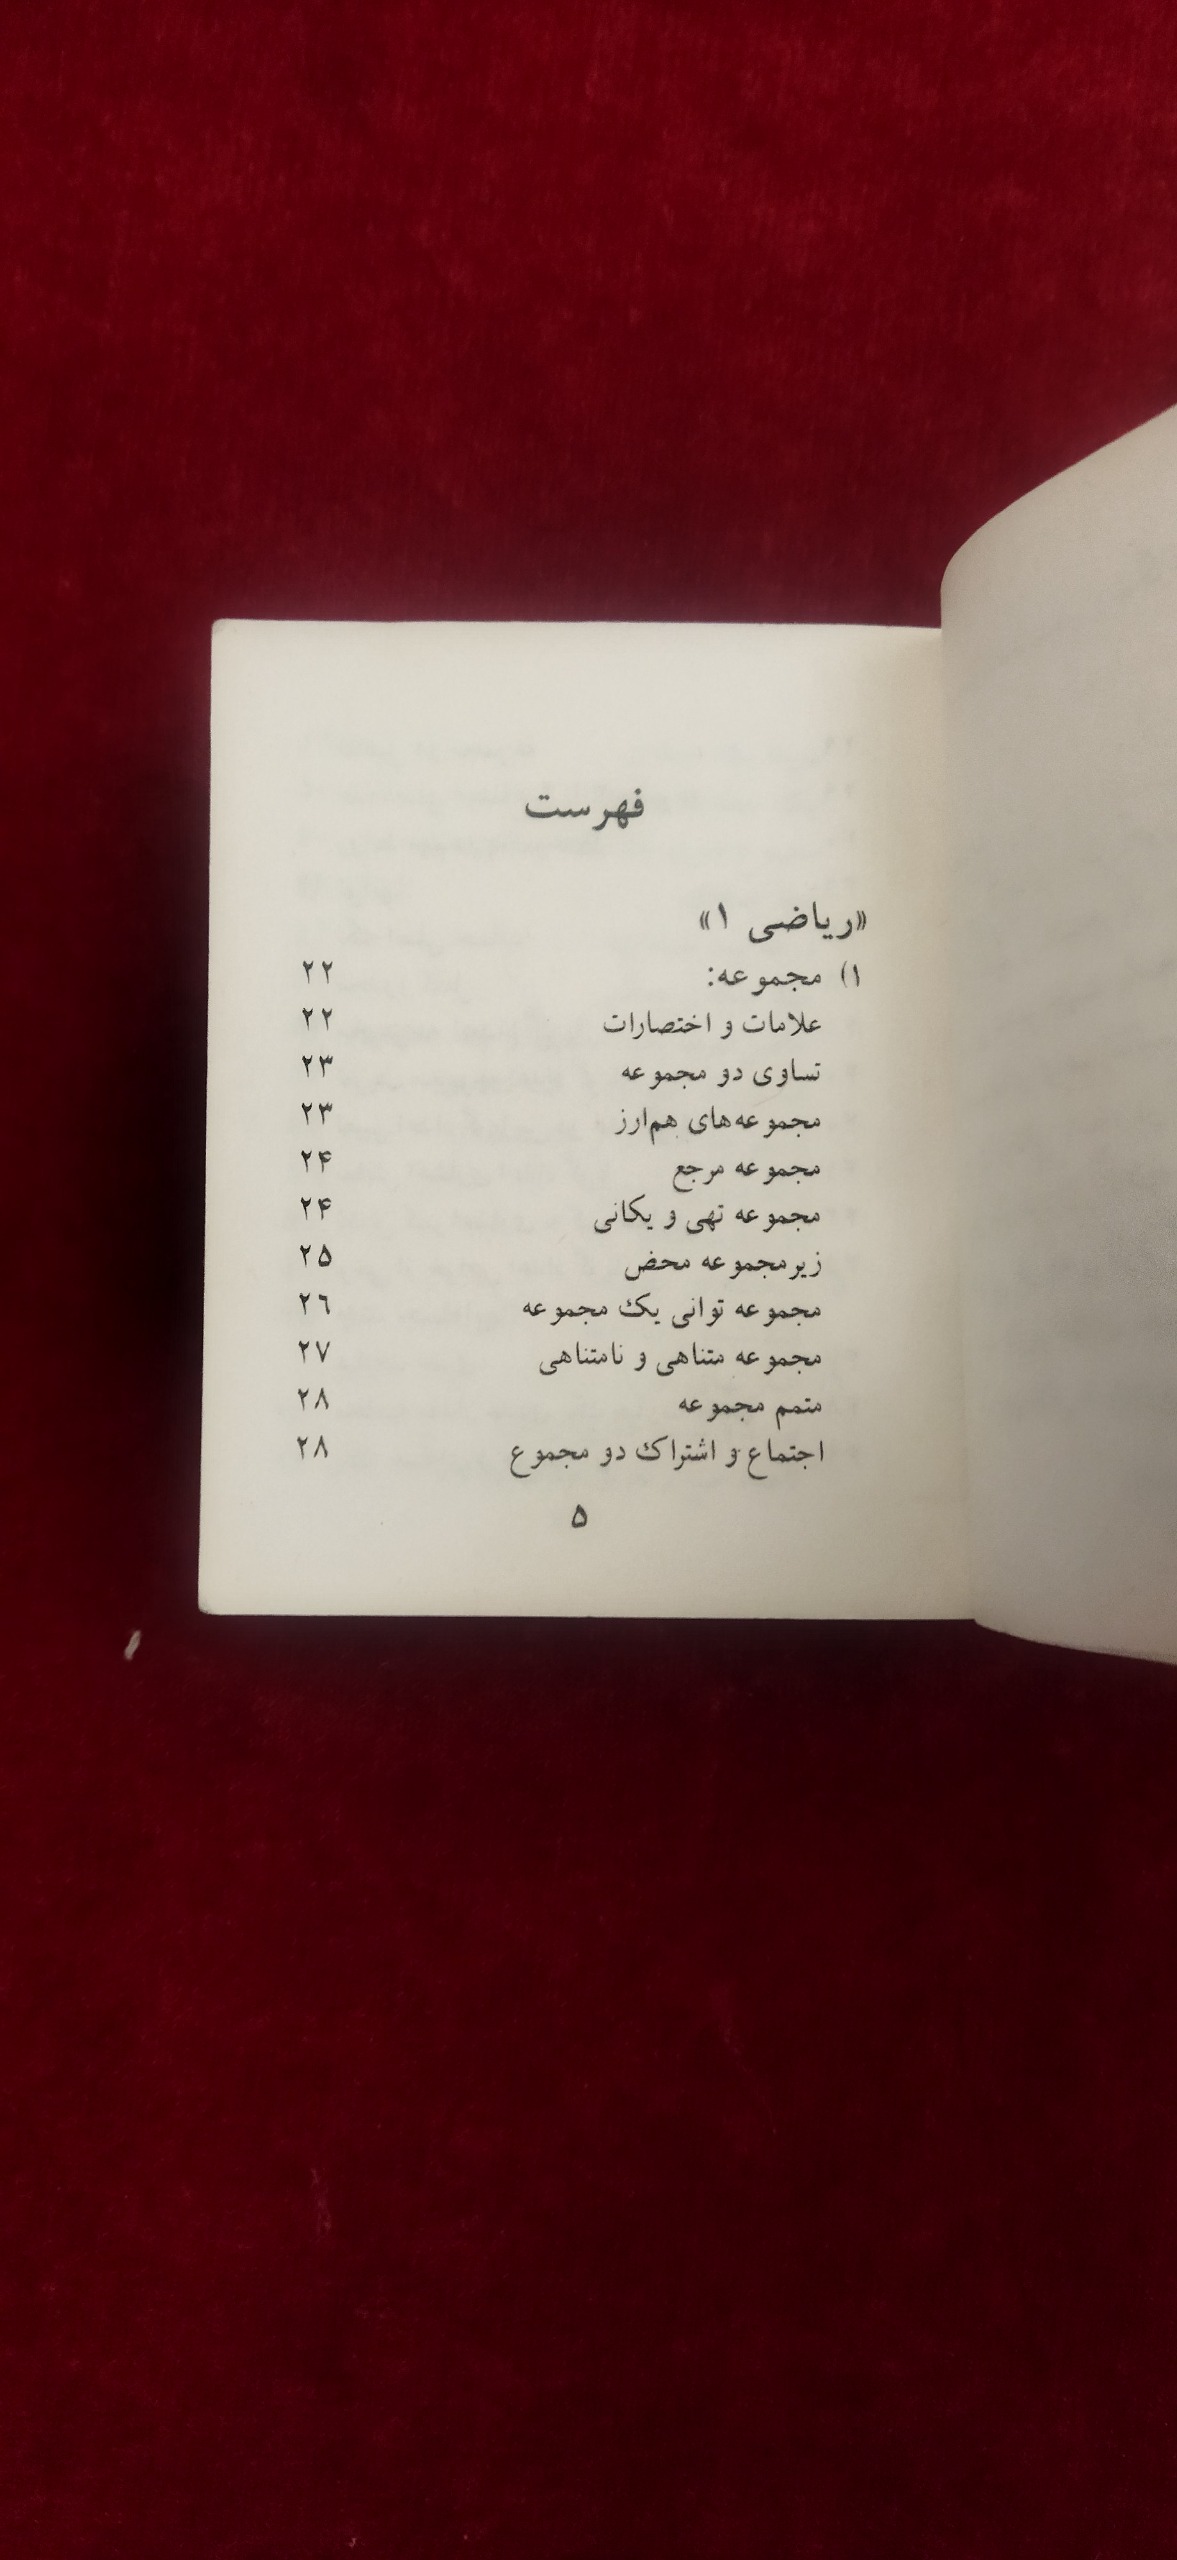 فهرست
«ریاضی ۱»
۱) مجموعه: ۲۲
علامات و اختصارات ۲۲
تساوی دو مجموعه ۲۳
مجموعه‌های هم‌ارز ۲۳
مجموعه مرجع ۲۴
مجموعه تهی و یکانی ۲۴
زیرمجموعه محض ۲۵
مجموعه توانی یک مجموعه ۲۶
مجموعه متناهی و نامتناهی ۲۷
متمم مجموعه ۲۸
اجتماع و اشتراک دو مجموع ۲۸
۵